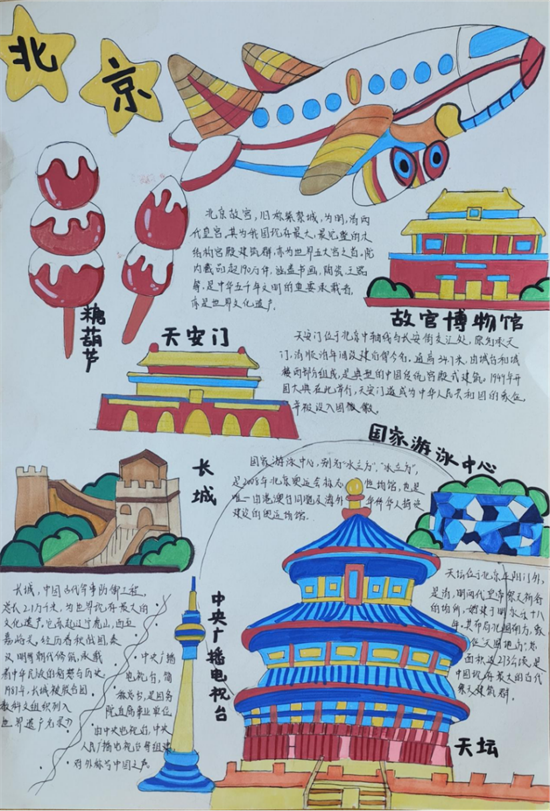 北京
糖葫芦
北京故宫,旧称紫禁城,为明、清两
代皇宫,其为我国现存最大、最完整的木
结构宫殿建筑群,亦为世界五大宫之首,院
内藏品超190万件,涵盖书画、陶瓷、玉器
等,是中华五千年文明的重要承载者,
亦是世界文化遗产。
故宫博物馆
天安门
天安门位于北京中轴线与长安街交汇处,原为承天
门,清顺治年间改建后留今名,通高34.7米,由城台和城
楼两部分组成,是典型的中国传统宫殿式建筑。1949年开
国大典在此举行,天安门遂成为中华人民共和国的象征
并被设入国徽徽。
国家游泳中心
国家游泳中心,别名"水立方"、"冰立方",
是2008年北京奥运会标志性场馆,也是
唯一由港澳台同胞、海外华侨华人捐资
建设的奥运场馆。
长城
长城,中国古代军事防御工程,
总长2.1万千米,为世界现存最大的
文化遗产,它东起辽宁虎山,西至
嘉峪关,
明
承载
着中华民族的智慧与历史。
1987年,长城被联合国
教科文组织列入
世界遗产名录。
中央广播电视台
中央广播
电视台,简
称总台,是国务
院直属事业单位
由中央电视台、中央
人民广播电视台等组建,
对外称为中国之声
天坛
天坛位于北京正阳门外,
是清、明两代皇帝祭天祈谷
的场所,始建于明永乐十八
年,
总
面积达273公顷,是
中国现存最大的古代
祭天建筑群。